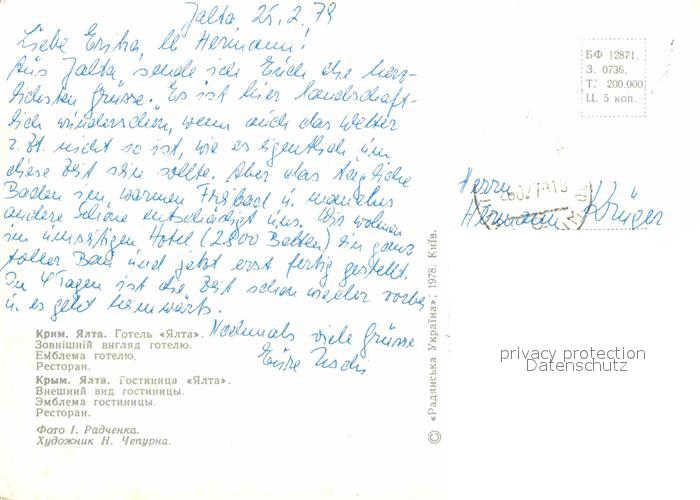 Jalta, 25.2.79
Liebe Erika, lb Hermann!
Aus Jalta sende ich Euch die herz-
lichsten Grüsse. Es ist hier landschaft-
lich wunderschön, wenn auch das Wetter
z. Zt. nicht so ist, wie es eigentlich um
diese Zeit sein sollte. Aber das tägliche
Baden im warmen Freibad u. manches
andere Schöne entschädigt uns. Wir wohnen
im umseitigen Hotel (2800 Betten) Ein ganz
toller Bau und jetzt erst fertig gestellt.
In 4 Tagen ist die Zeit schon wieder vorbei
u. es geht heimwärts.
Nochmals viele Grüsse
Eure Uschi
Крим. Ялта. Готель «Ялта».
Зовнішній вигляд готелю.
Емблема готелю.
Ресторан.
Крым. Ялта. Гостиница «Ялта».
Внешний вид гостиницы.
Эмблема гостиницы.
Ресторан.
Фото І. Радченка.
Художник Н. Чепурна.
© «Радянська Україна», 1978. Київ.
БФ 12871.
З. 0736.
Т. 200.000
Ц. 5 коп.
Herrn
Hermann Krüger
privacy protection
Datenschutz